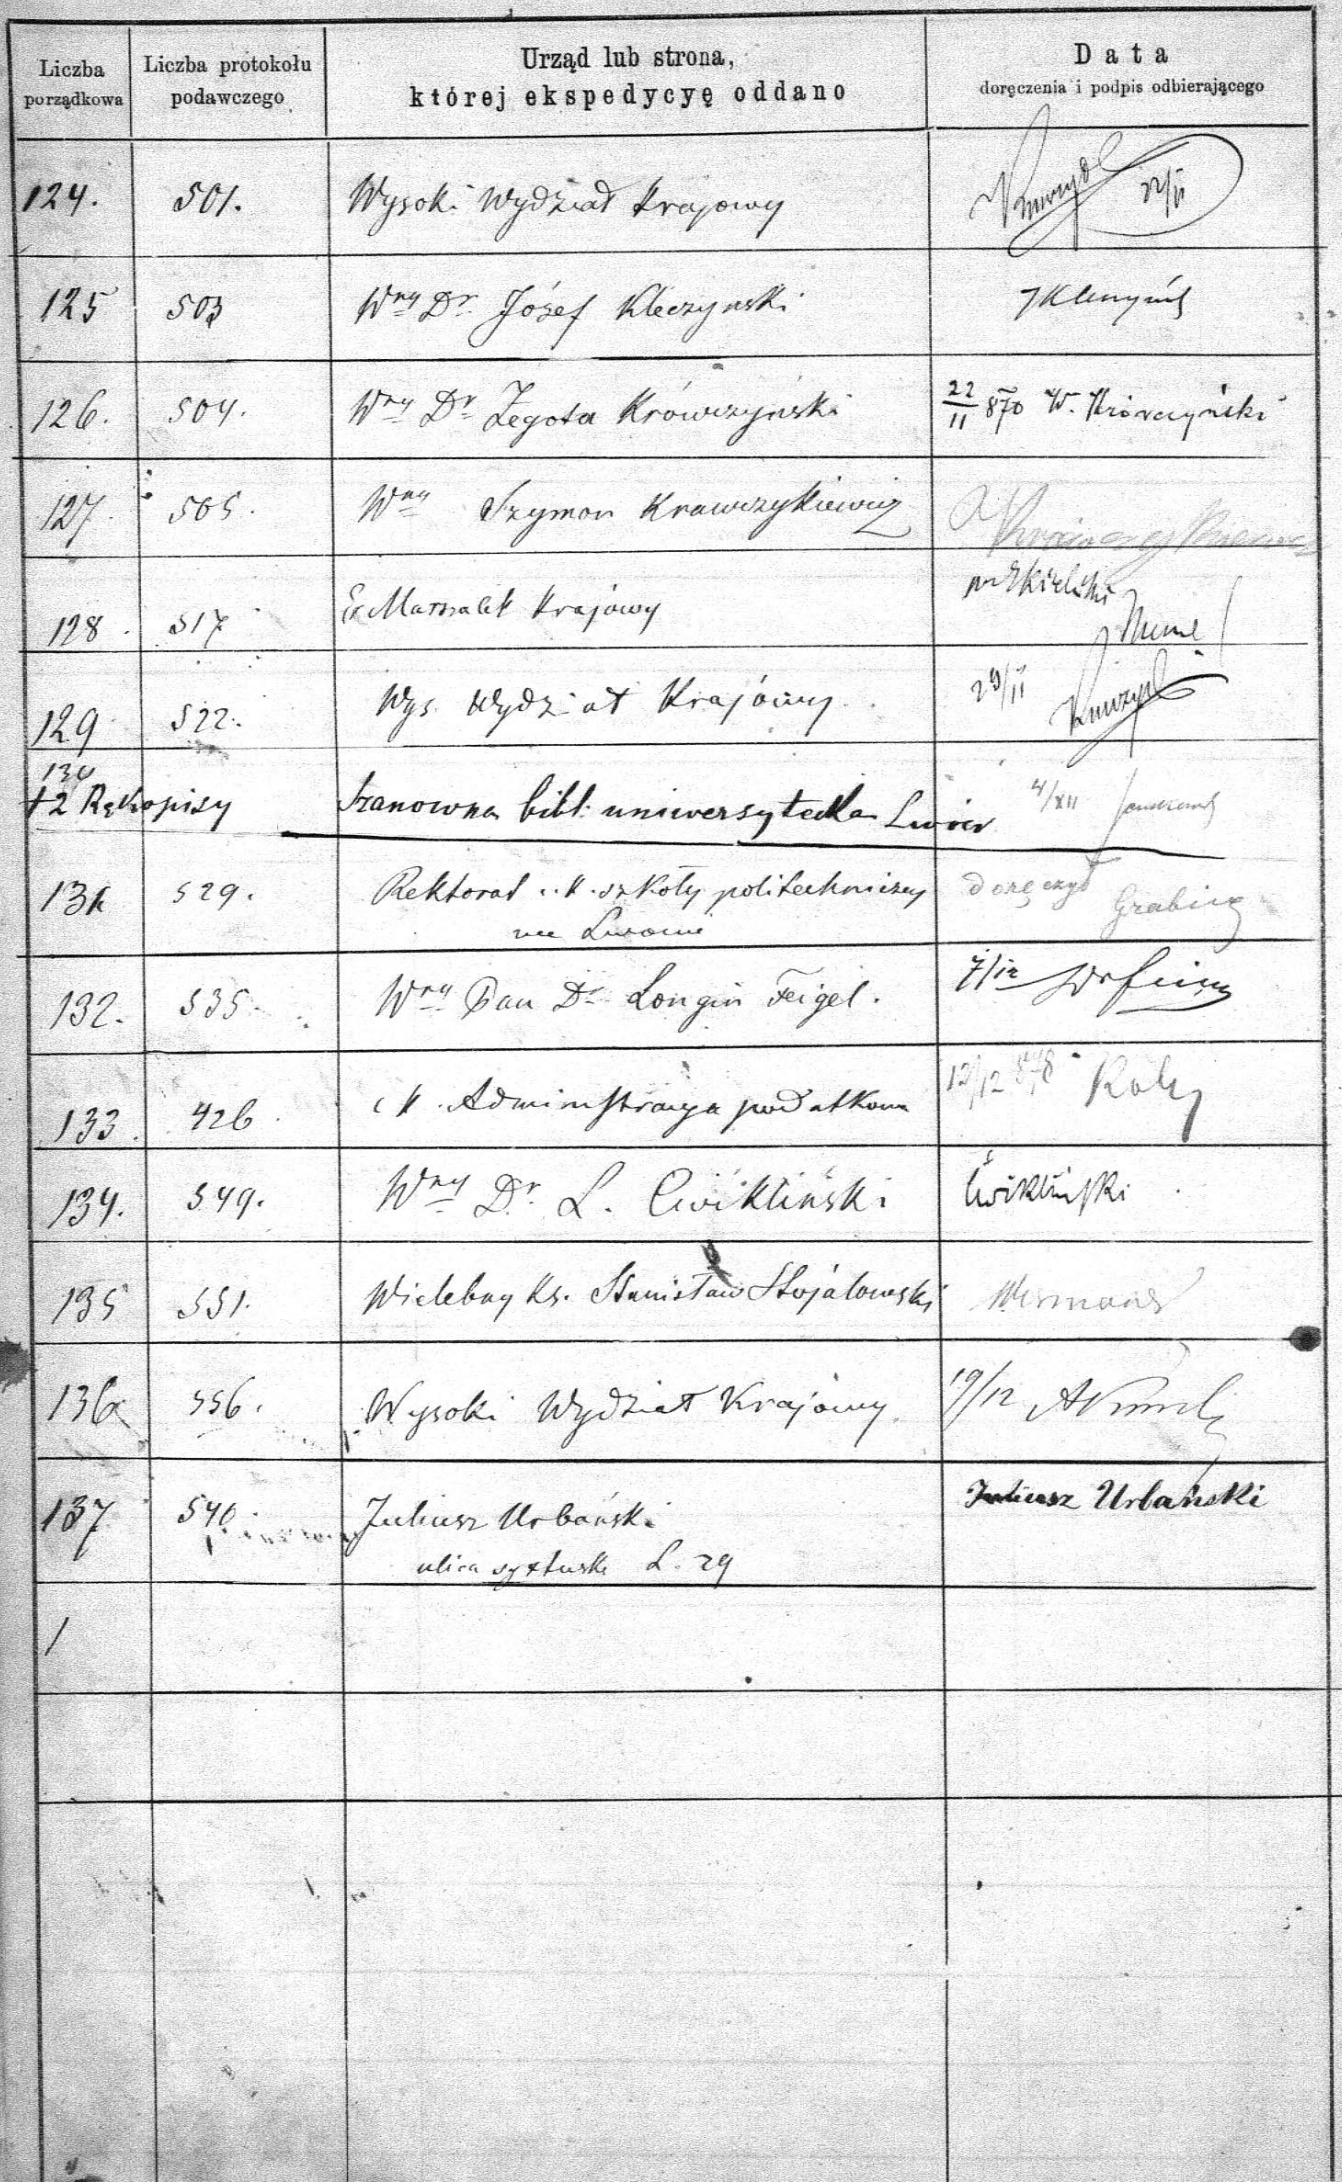 Liczba porządkowa
Liczba protokołu podawczego
Urząd lub strona, której ekspedycyę oddano
Data doręczenia i podpis odbierającego
124. 501. Wysoki Wydział Krajowy 22/11
125 503 Wny Dr Józef Kleczynski
126. 504. Wny Dr Żegota Krówczyński 22/11 870 W. Krówczyński
127. 505. Wny Szymon Krawczykiewicz
128. 517 Marszałek Krajowy
129 522. Wys. Wydział Krajowy 29/11
130
+2 Rękopisy Szanowna bibl: uniwersytecka Lwów 4/XII
131 529. Rektorat c.k. szkoły politechnicznej doręczył
we Lwowie
132. 535 Wny Pan Dr Longin Feigel. 7/12
133. 426 c k. Administracya podatkowa 12/12
134. 549. Wny Dr. L. Cwikliński Ćwikliński
135 551. Wielebny Ks. Stanisław Stojałowski
136 556. Wysoki Wydział Krajowy 19/12
137 540. Juliusz Urbański Juliusz Urbański
ulica syxtuska L. 29
1